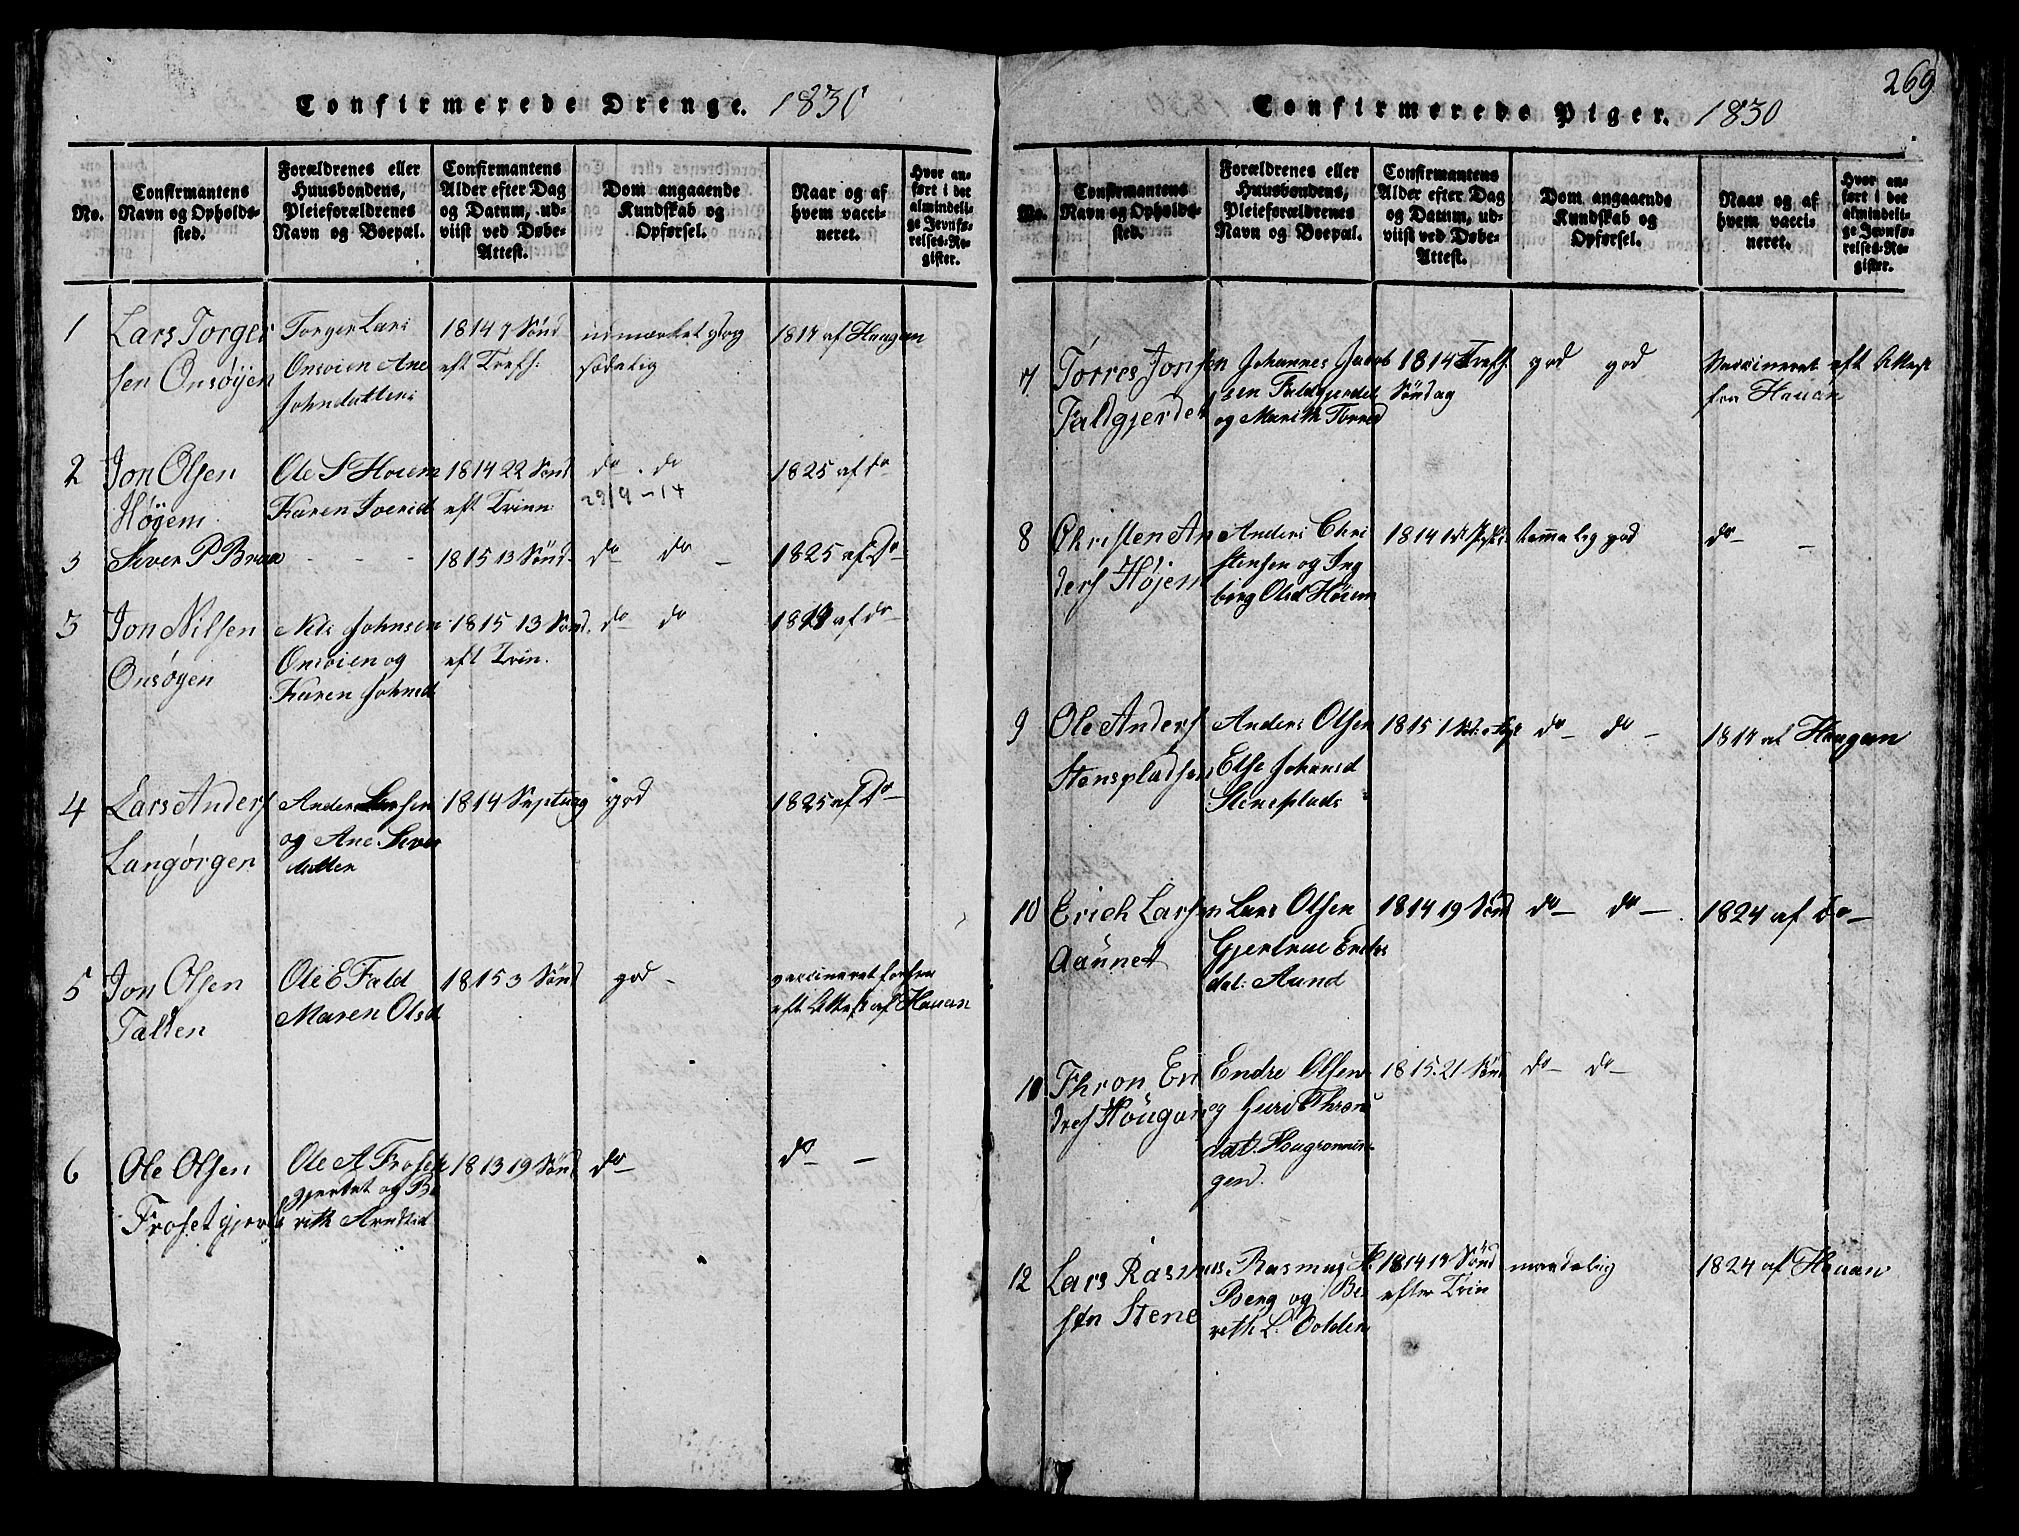 Confirmerede Drenge. 1830
No.
Confirmantens Navn og Opholdssted.
Forældrenes eller Huusbondens, Pleieforældrenes Navn og Boepæl.
Confirmantens Alder efter Dag og Datum, udviist ved Døbe-Attest.
Dom angaaende Kundskab og Opførsel.
Naar og af hvem vaccineret.
Hvor anført i det almindelige Jevnførelses-Register.
1
Lars Torger
sen Onsøyen
Torger Lars
Onsøien Ane
Johndatter
1814 7 Sønd
eft Tref:
udmærket god og
sædelig
1817 af Haugan
2
Jon Olsen
Høyem
Ole S Hoiem
Karen Iverid
1814 22 Sønd
eft Trin:
do - do
29/9 - 14
1825 af do
3
Siver P Braa
- - -
1815 13 Sønd
do do -
1825 af Do
3
Jon Nilsen
Onsøyen
Nels Johnsen
Onsøien og
Karen Johnsd
1815 13 Sønd.
eft Trin.
do do
af do
4
Lars Anders
Langørgen
Anders Larsen
og Ane Siver
datter
1814 Septuag
god
1825 af Do
5
Jon Olsen
Falden
Ole E Fald
Maren Olsd
1815 3 Sønd
god -
vaccineret
eft Attest af Hauan
6
Ole Olsen
Frosetgjerd
Ole A Froset
gjerdet og Be
rith Arntsd
1813 19 Sønd
do
do -
269
Confirmerede Piger. 1830
No.
Confirmantens Navn og Opholdssted.
Forældrenes eller Huusbondens, Pleieforældrenes Navn og Boepæl.
Confirmantens Alder efter Dag og Datum, udviist ved Døbe-Attest.
Dom angaaende Kundskab og Opførsel.
Naar og af hvem vaccineret.
Hvor anført i det almindelige Jevnførelses-Register.
7
Torres Jonsen
Faldgjerdet
Johannes Jacob
sen Faldgjerdet
og Marith Torresd
1814 Trefh.
Søndag
god god
Vaccineret eft Attest
fra Hauan
8
Christen An
ders Højem
Anders Chri
stensen og Ing
borg Olsd Hoiem
1814
temmelig god
do -
9
Ole Anders
Stenspladsen
Anders Olsen
Else Johansd
Steneplads
1815
do do -
1817 af Haugan
10
Erich Larsen
Aaunet
Lars Olsen
Gjertrue Erichs
dat: Aund
1814 19 Sønd
do do -
1824 af do
11
Thron En
dres Hougan
Endre Olsen
og Guri Thron
dat.
gen.
1815. 21 Sønd
do do
12
Lars Rasmus
sen Stene
Rasmus
Berg og Be
reth L. Volden
1814 Sønd
efter Trin
maadelig
1824 af Hauan